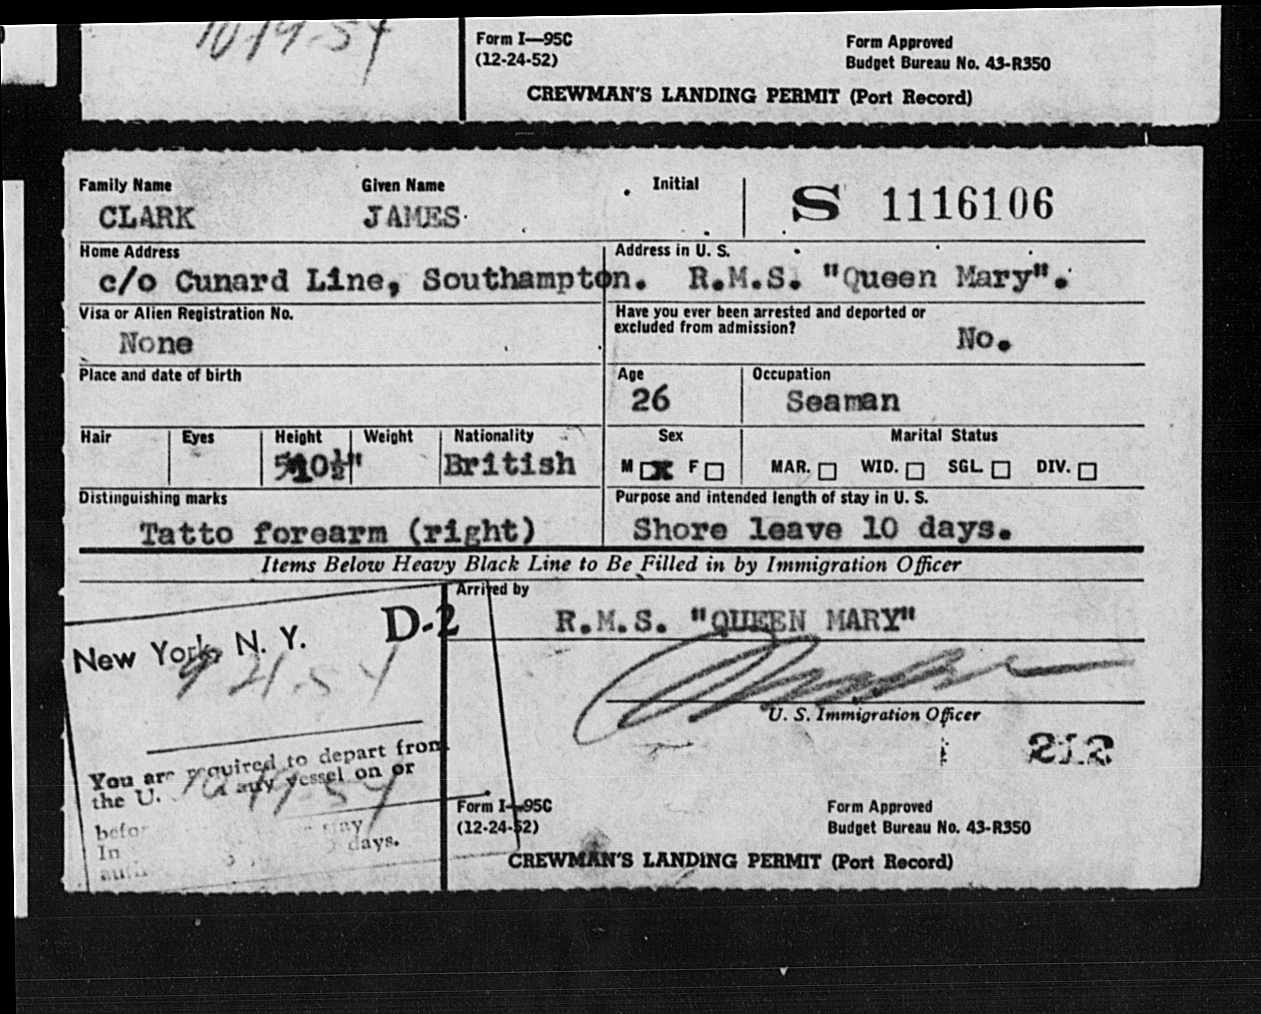 10-19-54
Form I—95C
(12-24-52)
Form Approved
Budget Bureau No. 43-R350
CREWMAN'S LANDING PERMIT (Port Record)
Family Name Given Name Initial
CLARK JAMES S 1116106
Home Address Address in U. S.
c/o Cunard Line, Southampton. R.M.S. "Queen Mary".
Visa or Alien Registration No. Have you ever been arrested and deported or
excluded from admission?
None No.
Place and date of birth Age Occupation
26 Seaman
Hair Eyes Height Weight Nationality Sex Marital Status
5'10½" British M F MAR. WID. SGL. DIV.
Distinguishing marks Purpose and intended length of stay in U. S.
Tatto forearm (right) Shore leave 10 days.
Items Below Heavy Black Line to Be Filled in by Immigration Officer
Arrived by
D-2 R.M.S. "QUEEN MARY"
New York, N. Y.
9 21-54
U. S. Immigration Officer
212
You are required to depart from
the U. any vessel on or
10-19-54
In days.
Form I—95C
(12-24-52)
Form Approved
Budget Bureau No. 43-R350
CREWMAN'S LANDING PERMIT (Port Record)